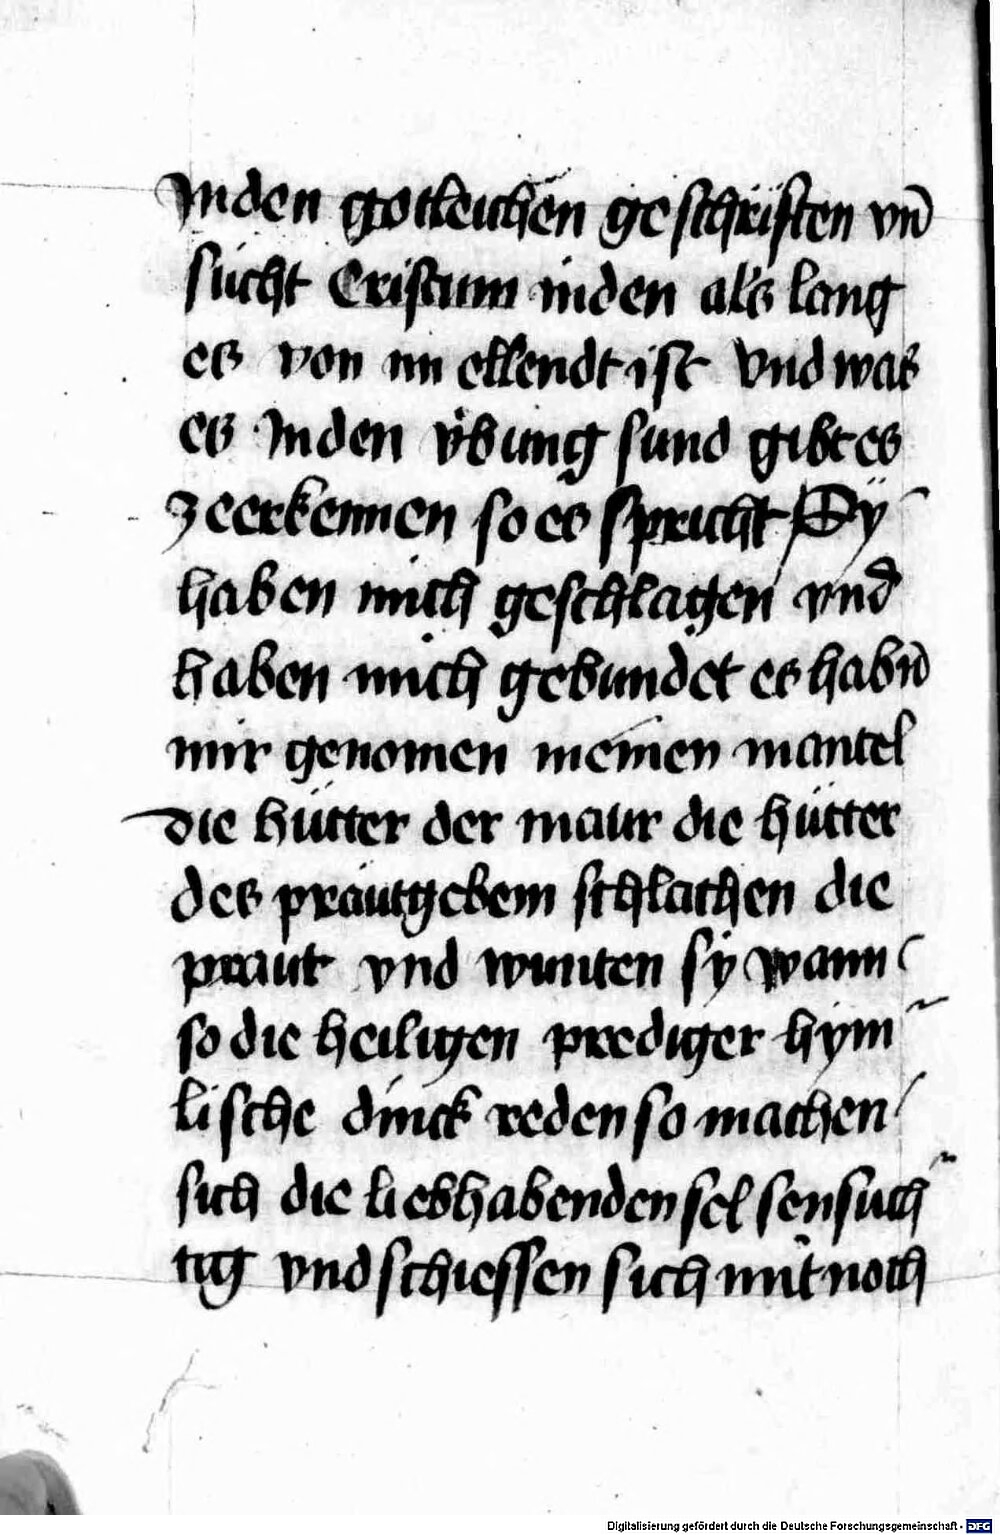 Inden gotleichen geschriften vn̄
sücht Cristum inden als lang
es von im ellendt ist Vnd was
es Inden v̈bung fund gibt es
zeerkennen so es spricht Sÿ
haben mich geschlagen vnd
haben mich gebundet es habn̄
mir genomen meinen mantel
die hütter der maur die hütter
des präutgebem schlachen die
praut vnd wunten sy wann
so die heiligen prediger hym
lische dinck reden so machen
sich die liebhabenden sel sensüch
tig vnd schiessen sich mit noch
Digitalisierung gefördert durch die Deutsche Forschungsgemeinschaft - DFG